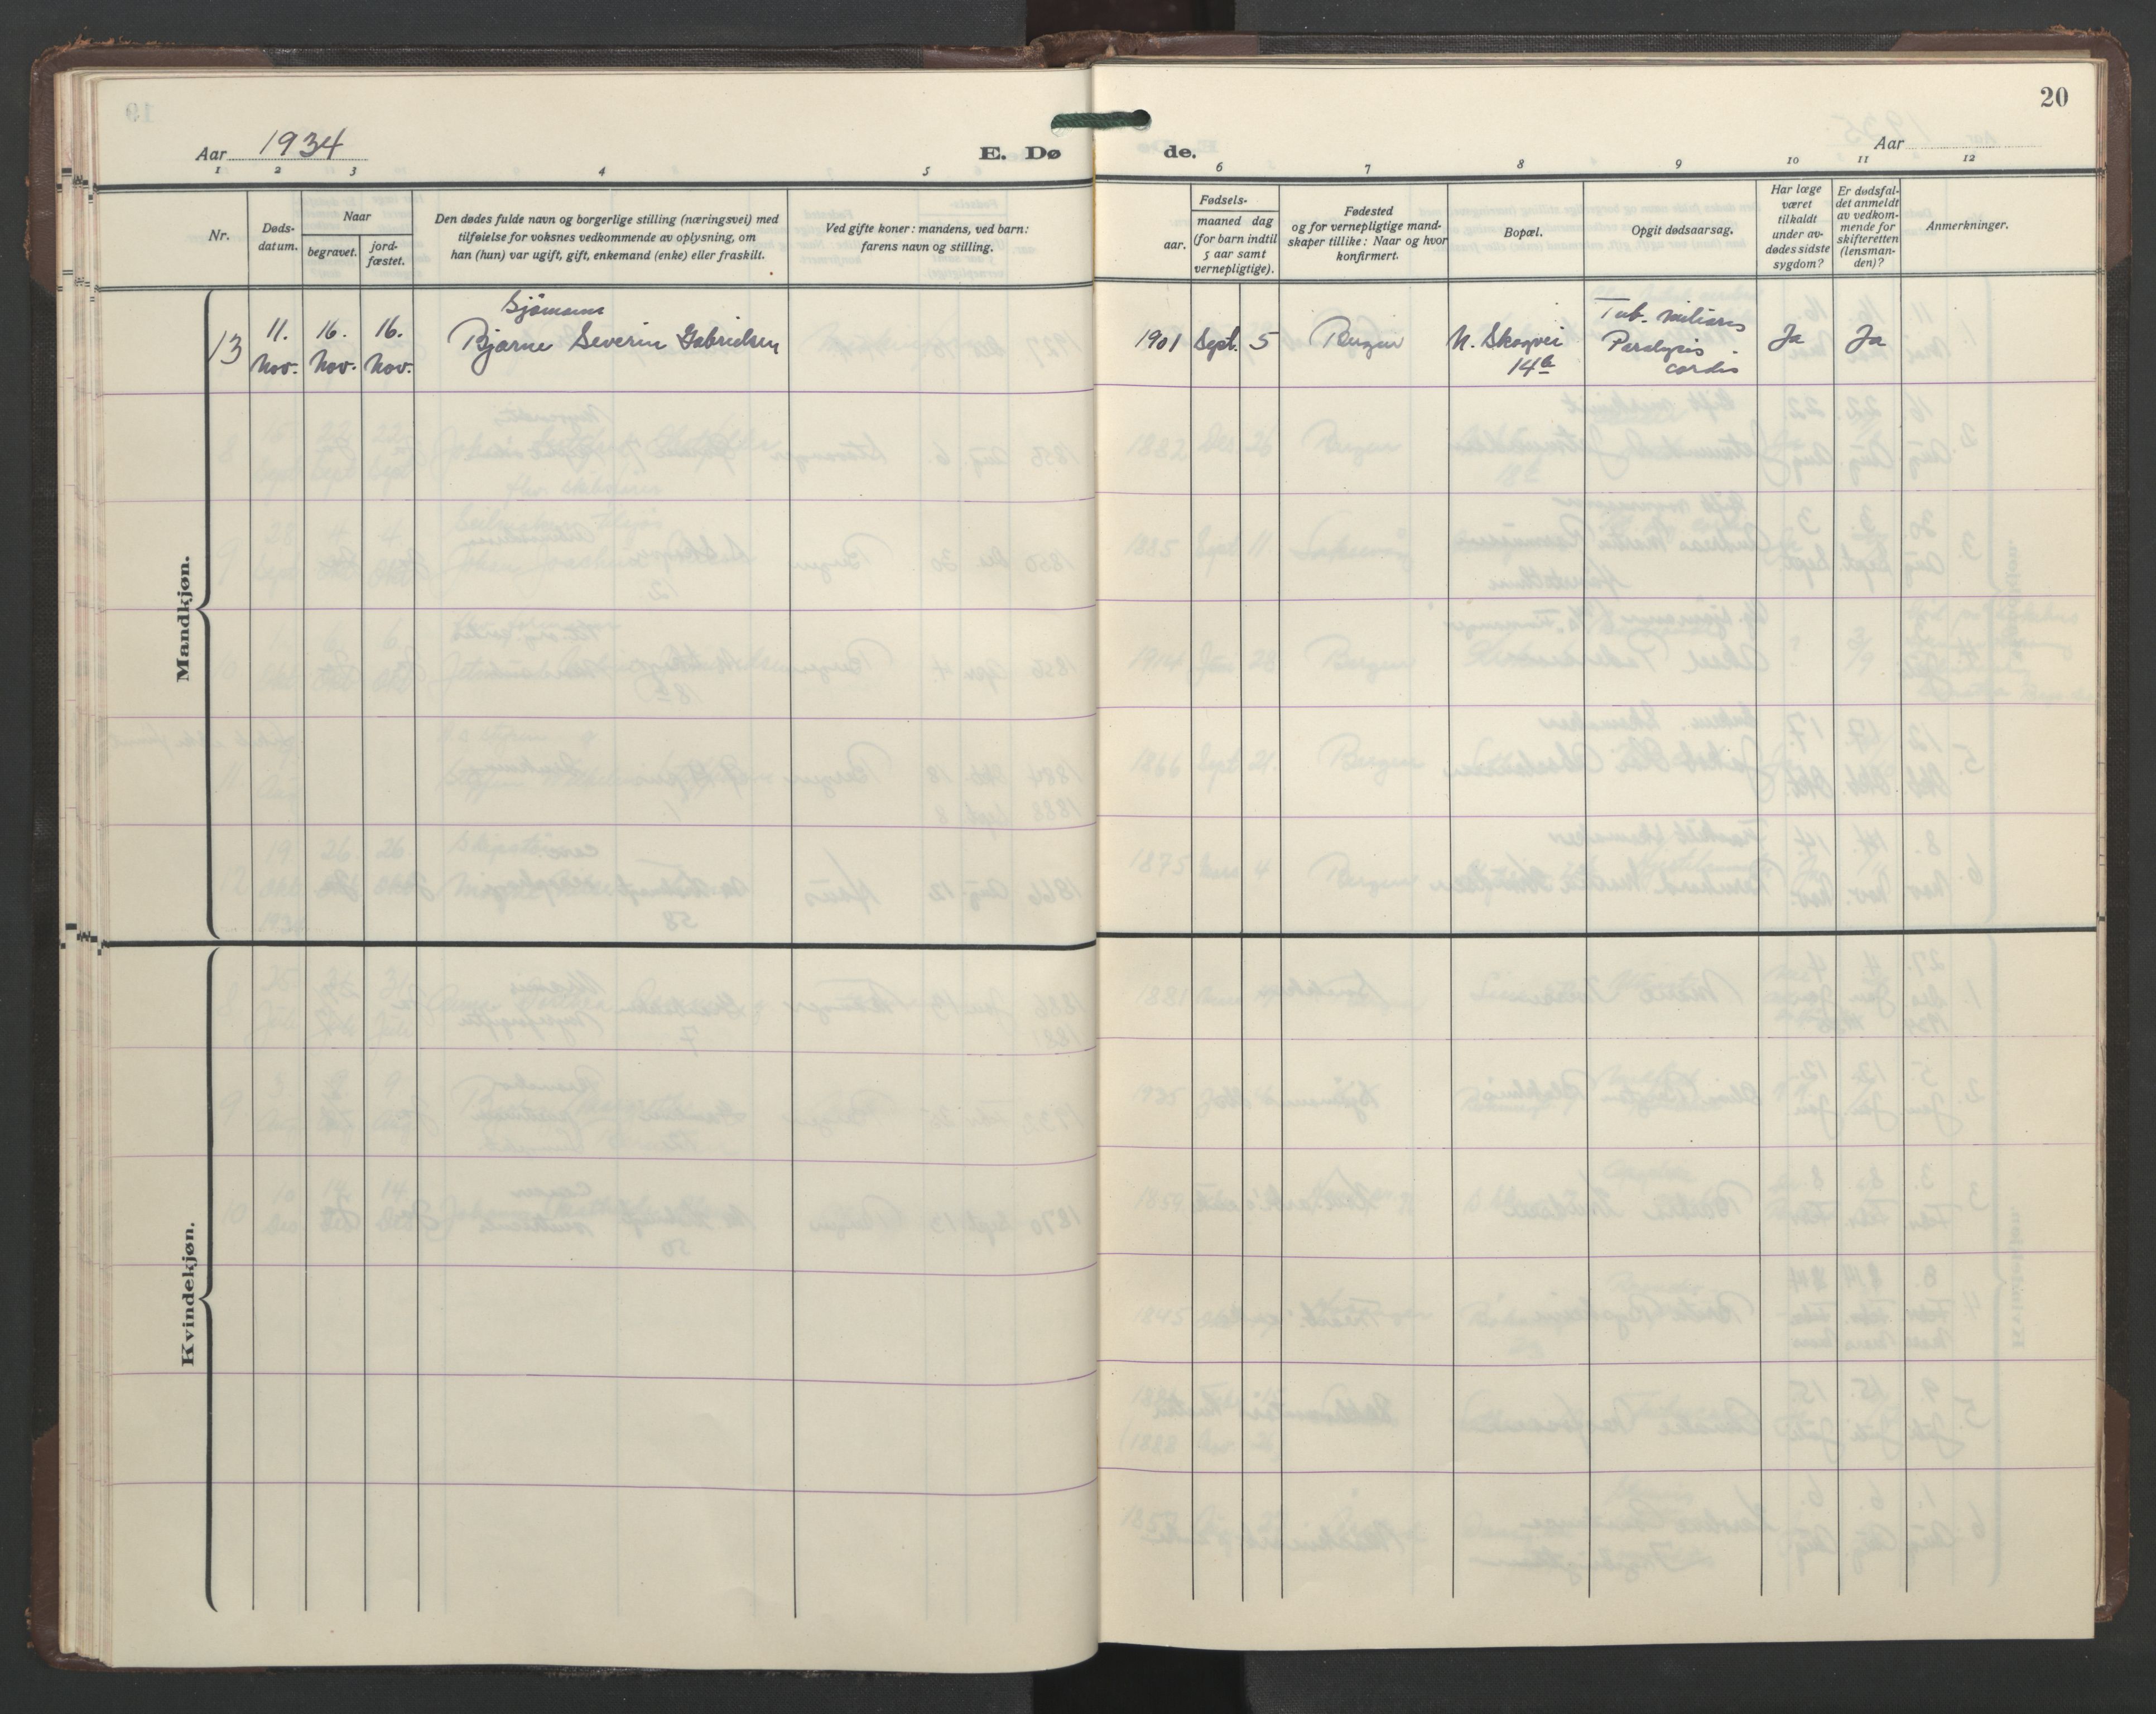 20
Aar 1934
E. Dø
de.
Aar
1 2 3 4 5 6 7 8 9 10 11 12
Nr.
Døds-
datum.
Naar
begravet.
jord-
fæstet.
Den dødes fulde navn og borgerlige stilling (næringsvei) med
tilføielse for voksnes vedkommende av oplysning, om
han (hun) var ugift, gift, enkemand (enke) eller fraskilt.
Ved gifte koner: mandens, ved barn:
farens navn og stilling.
Fødsels-
aar.
maaned dag
(for barn indtil
5 aar samt
vernepligtige).
Fødested
og for vernepligtige mand-
skaper tillike: Naar og hvor
konfirmert.
Bopæl.
Opgit dødsaarsag.
Har læge
været
tilkaldt
under av-
dødes sidste
sygdom?
Er dødsfal-
det anmeldt
av vedkom-
mende for
skifteretten
(lensman-
den)?
Anmerkninger.
Mandkjøn.
13
11.
Nov.
16.
Nov.
16.
Nov.
Sjømann
Bjarne Severin Gabrielsen
1901 Sept. 5
Bergen
N. Skogvei
14b
Tub. miliaris
Paralysis
cordis
Ja
Ja
Kvindekjøn.